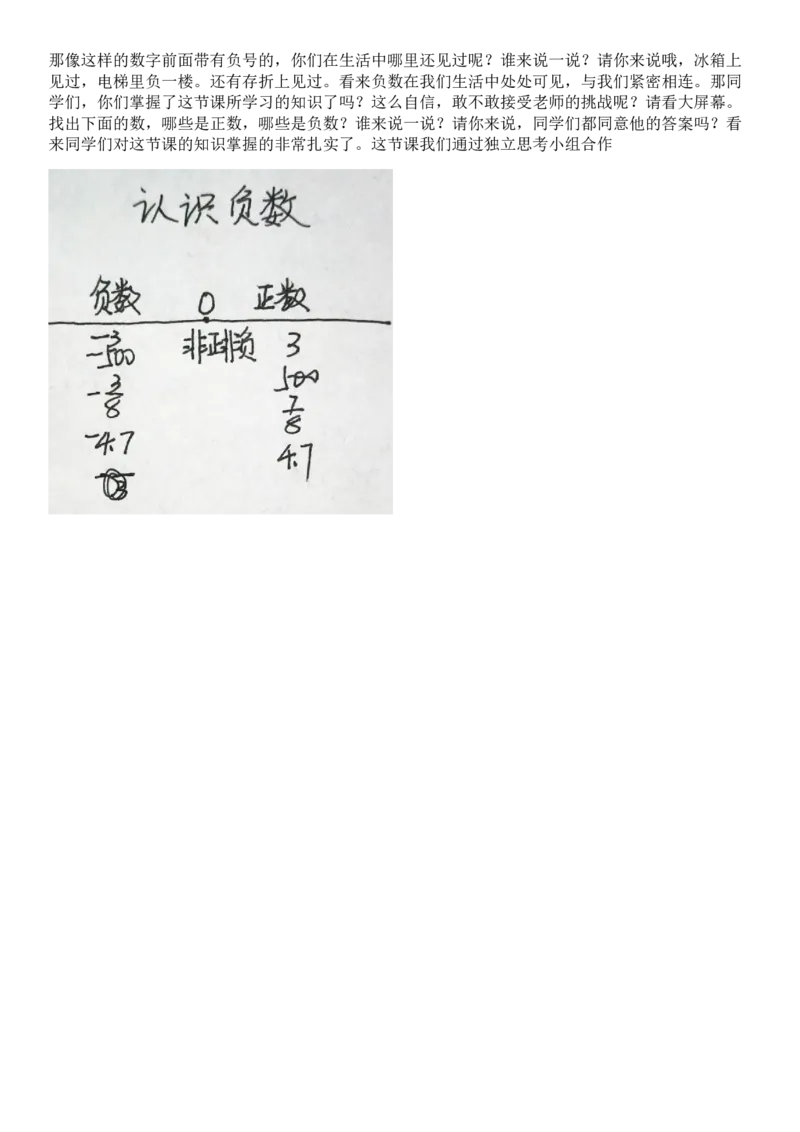 那像这样的数字前面带有负号的，你们在生活中哪里还见过呢？谁来说一说？请你来说哦，冰箱上
见过，电梯里负一楼。还有存折上见过。看来负数在我们生活中处处可见，与我们紧密相连。那同
学们，你们掌握了这节课所学习的知识了吗？这么自信，敢不敢接受老师的挑战呢？请看大屏幕。
找出下面的数，哪些是正数，哪些是负数？谁来说一说？请你来说，同学们都同意他的答案吗？看
来同学们对这节课的知识掌握的非常扎实了。这节课我们通过独立思考小组合作
认识负数
负数 0 正数
-3 非正非负 3
-500 500
-3/8 7/8
-4.7 4.7